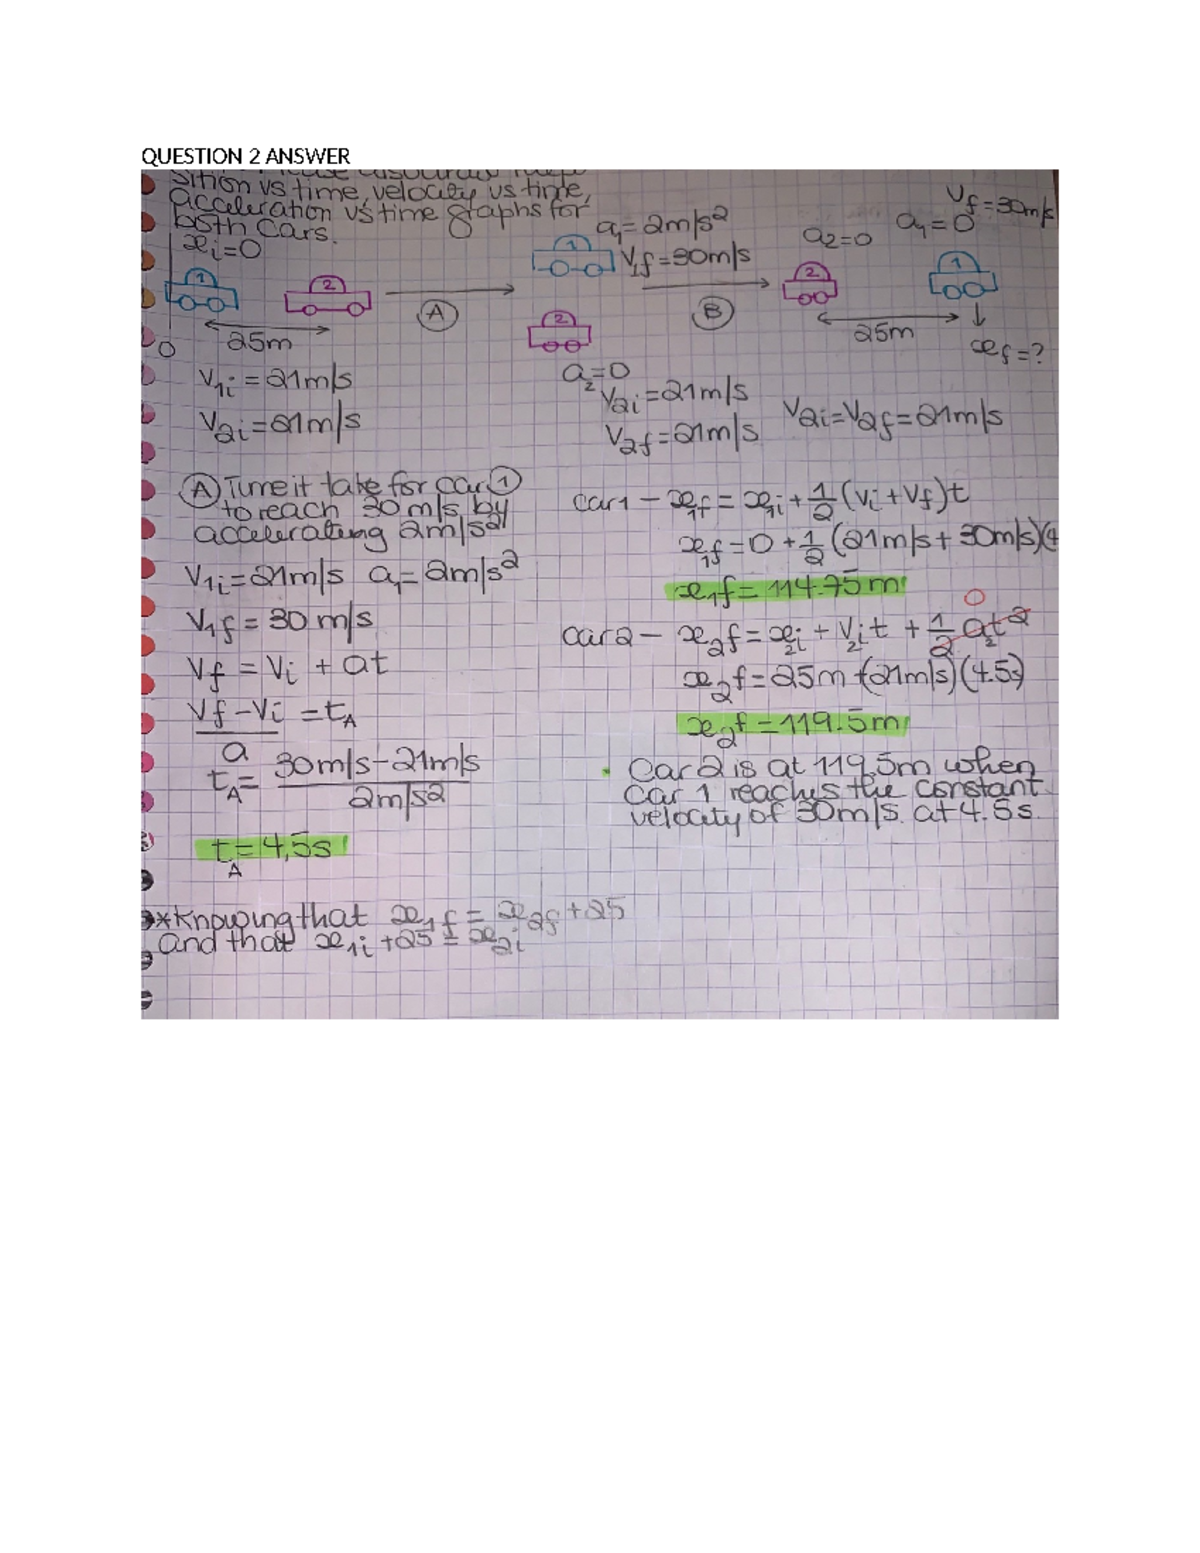 QUESTION 2 ANSWER
sition vs time, velocity vs time,
acceleration vs time graphs for
both cars.
xi=0
1
2
25m
0
A
a1=2m/s²
1
Vf=30m/s
2
B
a2=0
2
a1=0
Vf=30m/s
1
25m
xf=?
V1i=21m/s
V2i=21m/s
a2=0
V2i=21m/s
V2f=21m/s
V2i=V2f=21m/s
A Time it take for car 1
to reach 30 m/s by
accelerating 2m/s²
V1i=21m/s a1=2m/s²
V1f=30 m/s
Vf = Vi + at
Vf-Vi = tA
a
tA= 30m/s-21m/s
2m/s²
tA=4,5s
car1 - x1f = x1i + 1/2 (Vi+Vf)t
x1f=0 + 1/2 (21m/s+30m/s)(4
x1f= 114.75m
0
car2 - x2f = x2i + V2it + 1/2 a2t²
x2f=25m+(21m/s)(4.5s)
x2f=119.5m
Car 2 is at 119.5m when
car 1 reachs the constant
velocity of 30m/s. at 4.5s.
*Knowing that x1f = x2f+25
and that x1i+25 = x2i